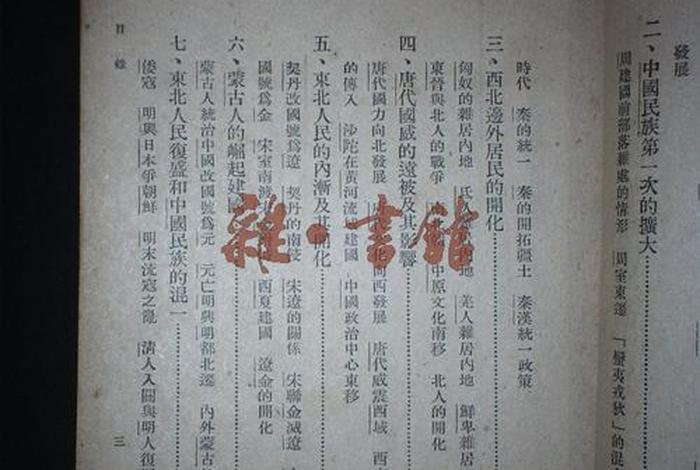 發展
二、中國民族第一次的擴大
周建國前部落雜處的情形 周室東遷 「蠻夷戎狄」的混
時代 秦的統一 秦的開拓疆土 秦漢統一政策
三、西北邊外居民的開化
匈奴的雜居內地 氐人雜居內地 羌人雜居內地 鮮卑雜居
東晉與北人的戰爭 中原文化南移 北人的開化
四、唐代國威的遠被及其影響
唐代國力向北發展 向西發展 唐代威震西域 西
的傳入 沙陀在黃河流域建國 中國政治中心東移
五、東北人民的內漸及其開化
契丹改國號爲遼 契丹的南侵 宋遼的關係 宋聯金滅遼
國號爲金 宋室南渡 西夏建國 遼金的開化
六、蒙古人的崛起建國
蒙古人統治中國改國號爲元 元亡明興明都北遷 內外蒙古
七、東北人民復盛和中國民族的混一
倭寇 明與日本爭朝鮮 明末流寇之亂 清人入關與明人復
目錄
三
雜·書館